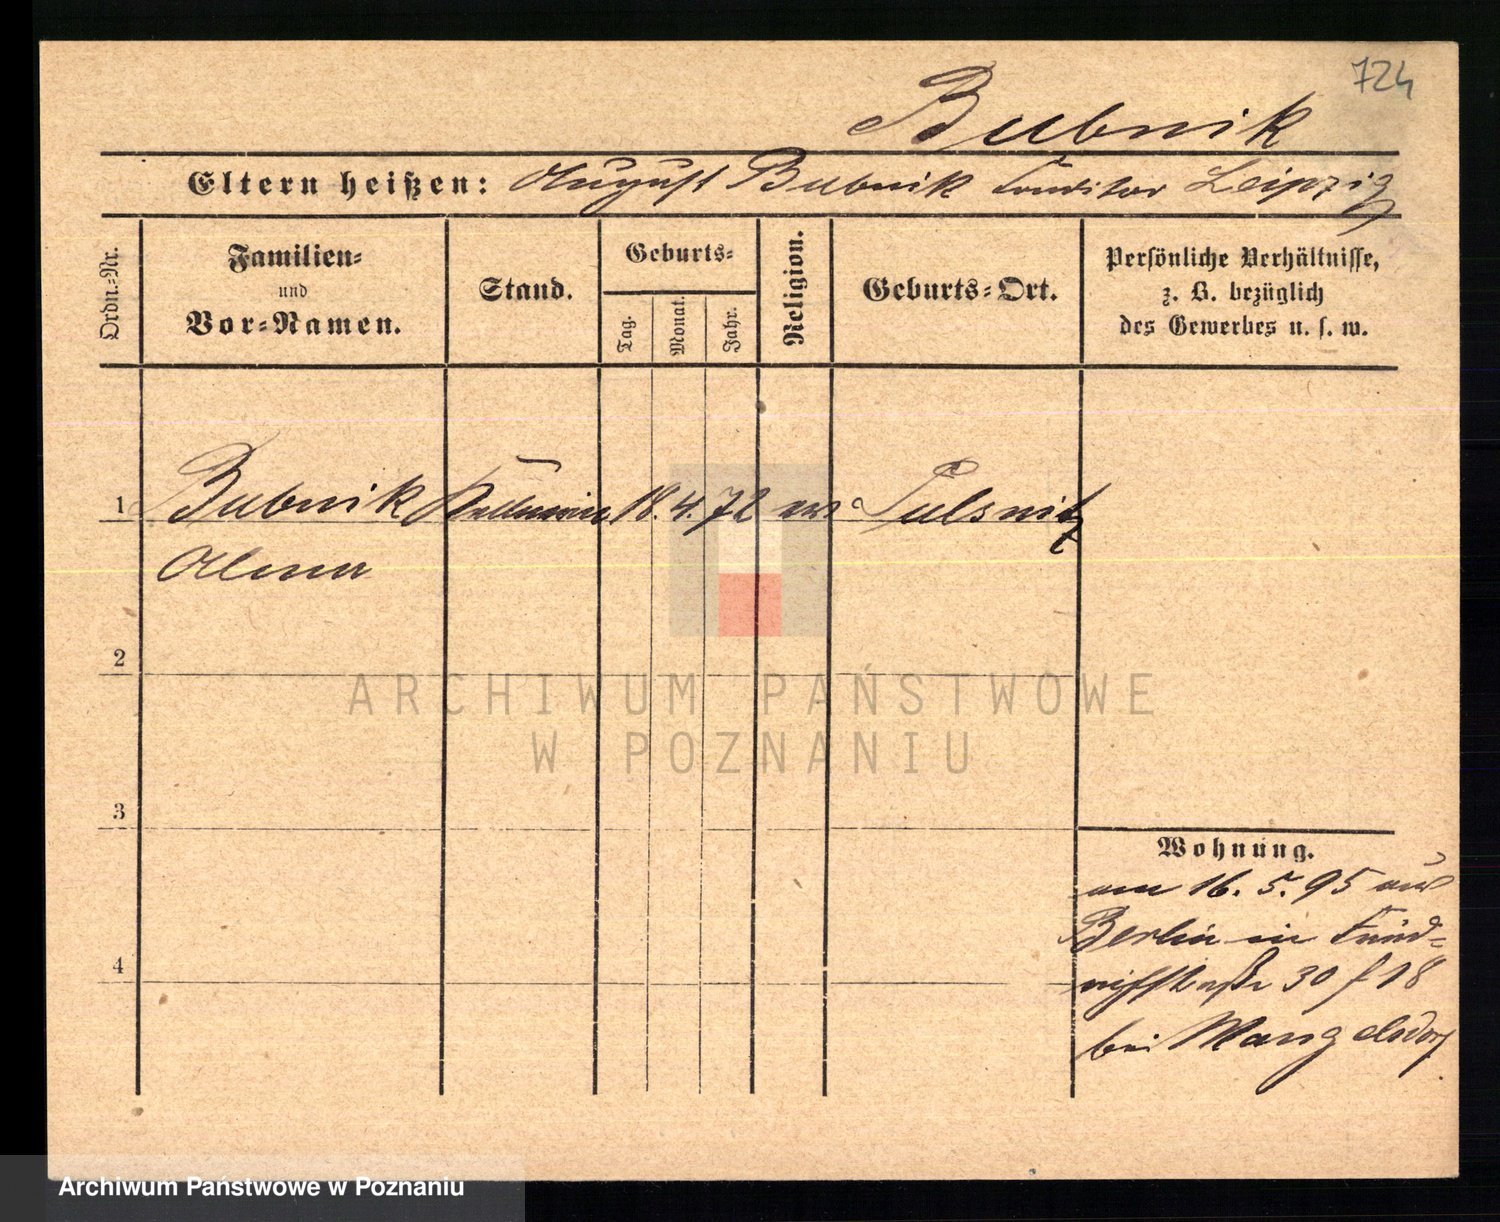 724
Bubnik
Eltern heißen: August Bubnik Conditor Leipzig
Ordn.-Nr.
Familien-
und
Vor-Namen.
Stand.
Geburts-
Tag.
Monat.
Jahr.
Religion.
Geburts-Ort.
Persönliche Verhältnisse,
z. B. bezüglich
des Gewerbes u. s. w.
1 Bubnik Kellnerin 18. 4. 72 ev Pulsnitz
Alma
2
3
4
Wohnung.
am 16. 5. 95 aus
Berlin in
30
bei Mangelsdorf
ARCHIWUM PAŃSTWOWE
W POZNANIU
Archiwum Państwowe w Poznaniu